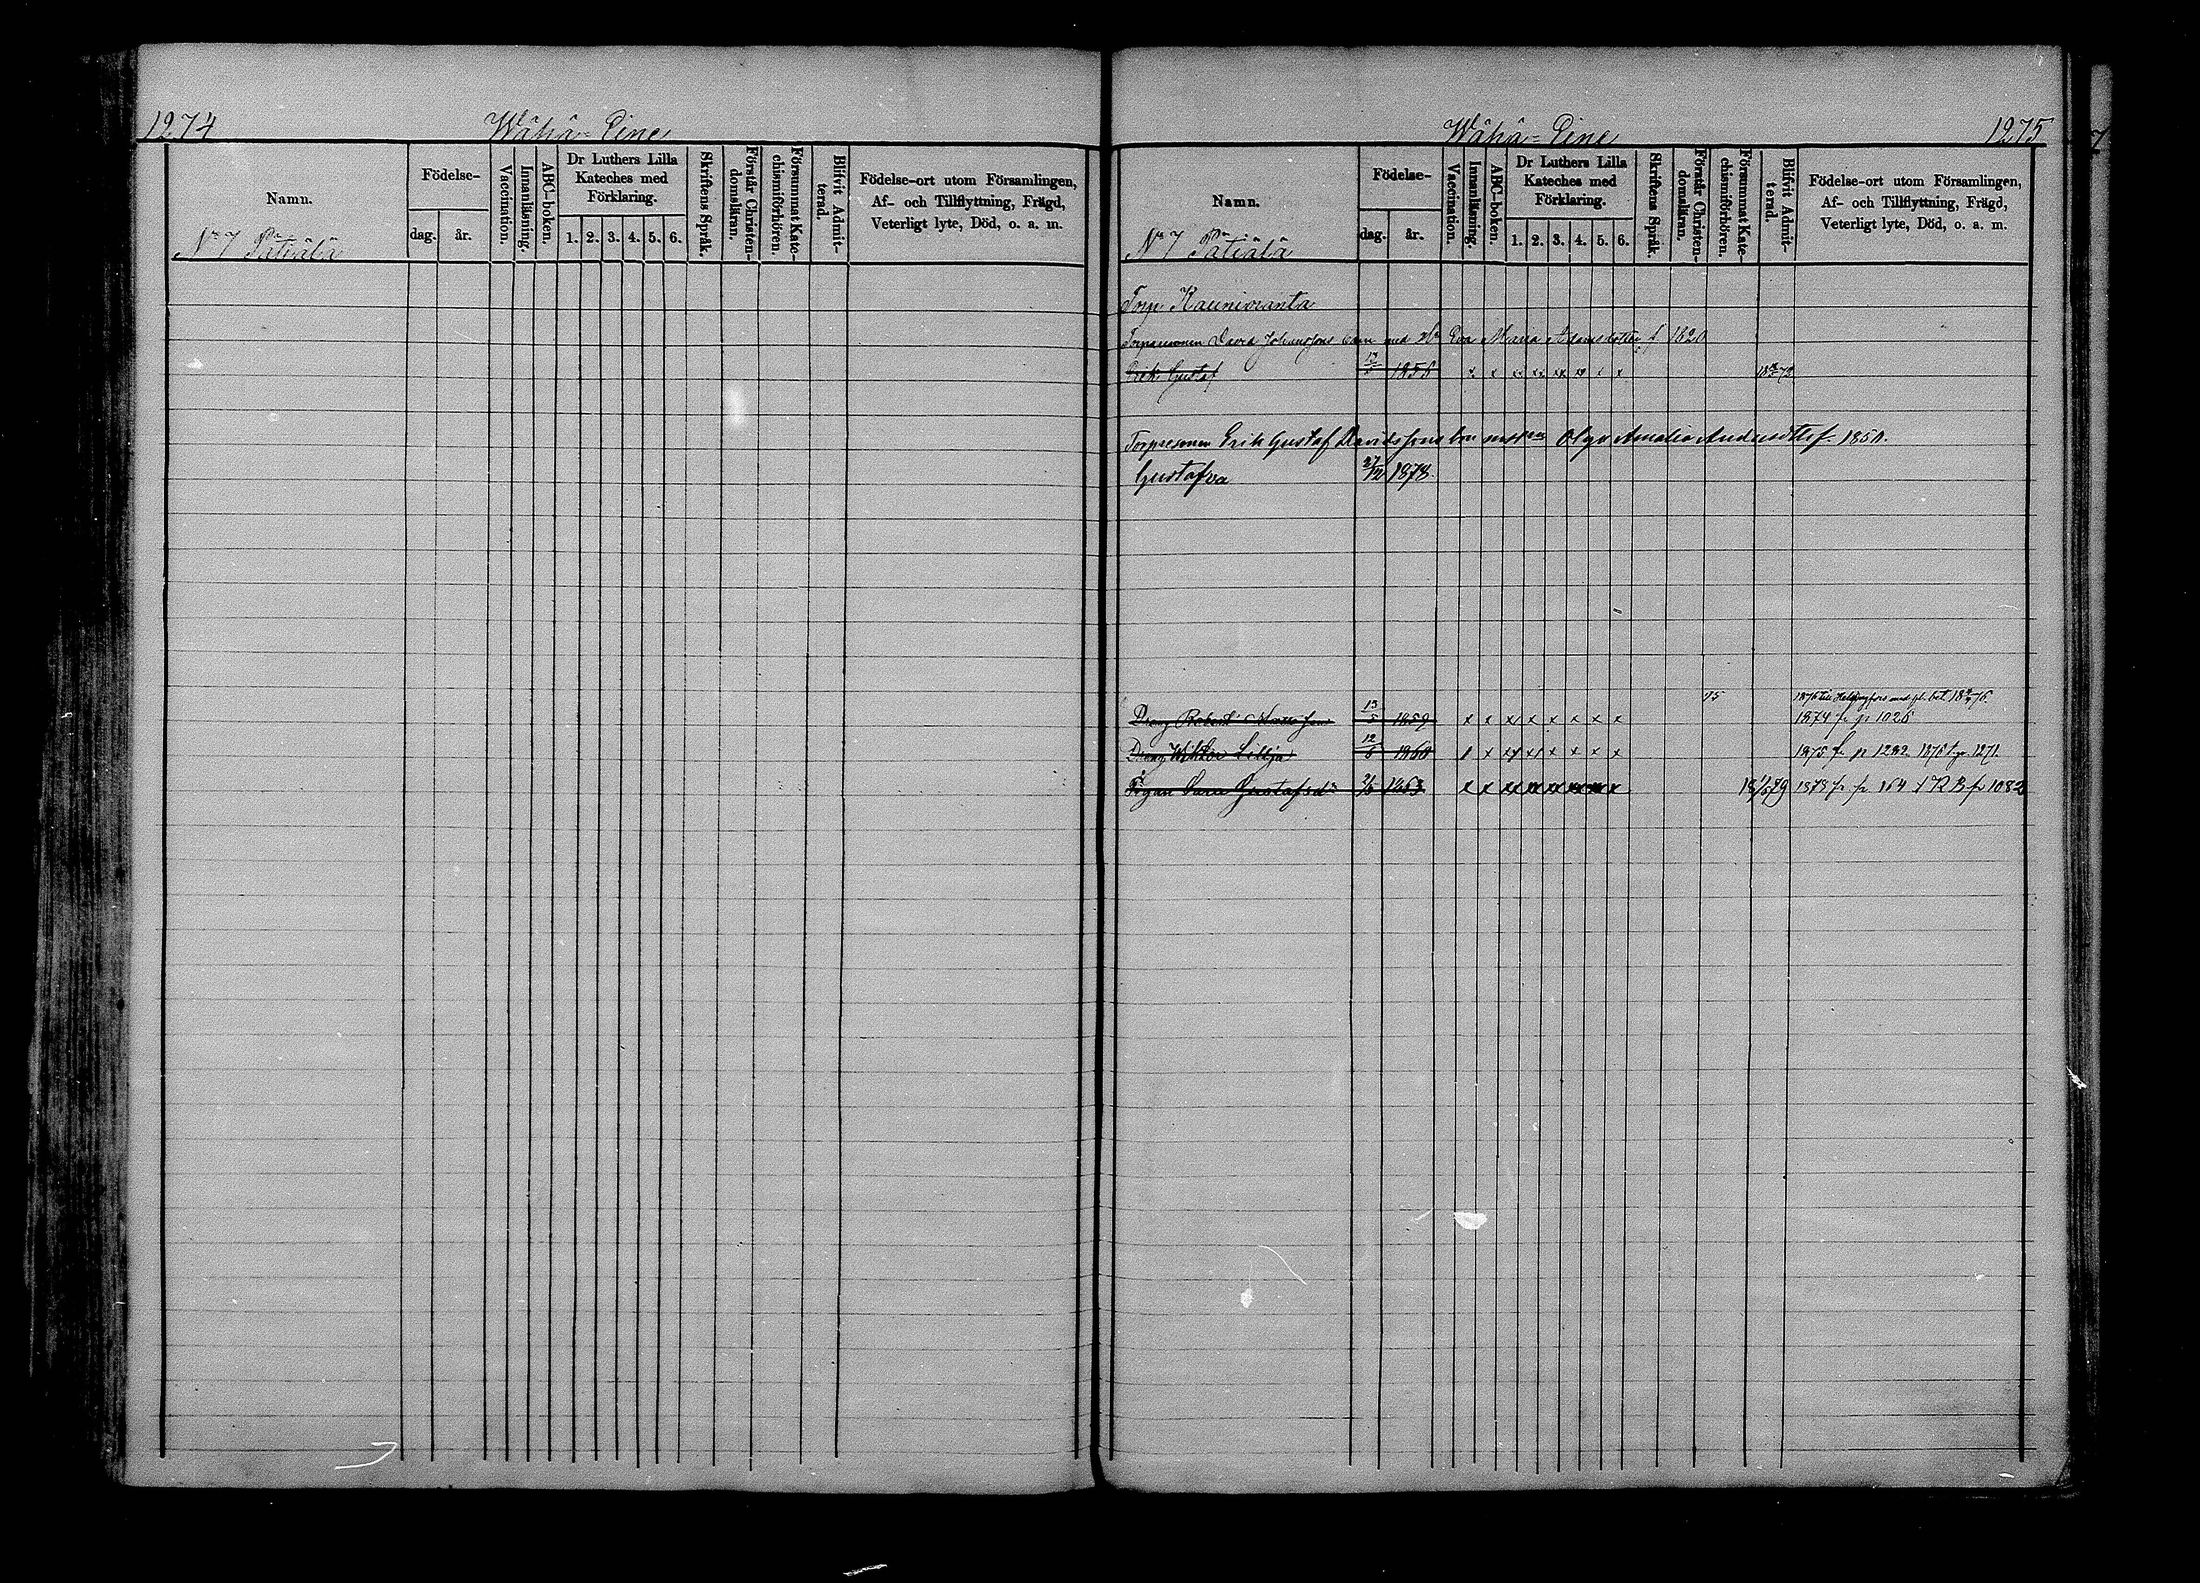 1274 Wähä-Eine
Namn.
Födelse-
dag. år.
Vaccination.
Innanläsning.
ABC-boken.
Dr Luthers Lilla
Kateches med
Förklaring.
1. 2. 3. 4. 5. 6.
Skriftens Språk.
Förstår Christen-
domsläran.
Försummat Kate-
chismiförhören.
Blifvit Admit-
terad.
Födelse-ort utom Församlingen,
Af- och Tillflyttning, Frägd,
Veterligt lyte, Död, o. a. m.
No 7 Pätiälä
Wähä-Eine 1275
Namn.
Födelse-
dag. år.
Vaccination.
Innanläsning.
ABC-boken.
Dr Luthers Lilla
Kateches med
Förklaring.
1. 2. 3. 4. 5. 6.
Skriftens Språk.
Förstår Christen-
domsläran.
Försummat Kate-
chismiförhören.
Blifvit Admit-
terad.
Födelse-ort utom Församlingen,
Af- och Tillflyttning, Frägd,
Veterligt lyte, Död, o. a. m.
No 7 Pätiälä
Torp Kauniranta
David Johanssons barn med Eva Maria Adamsdotter f 1820
Erik Gustaf x x x x x x x x
Erik Gustaf Davidssons barn med Olga Amalia
Gustafva 27/12 1878.
75 1876 till Helsingfors med bet
Dräng Robert 13/5 1859 x x x x x x x x 1874 fr p 1026
Dräng Wiktor Lillja 12/6 1860 x x x x x x x 1875 fr p 1282 1271.
Pigan Sara Gustafsdr 1863 x x x x x x x x 1878 fr p 164 p 1082